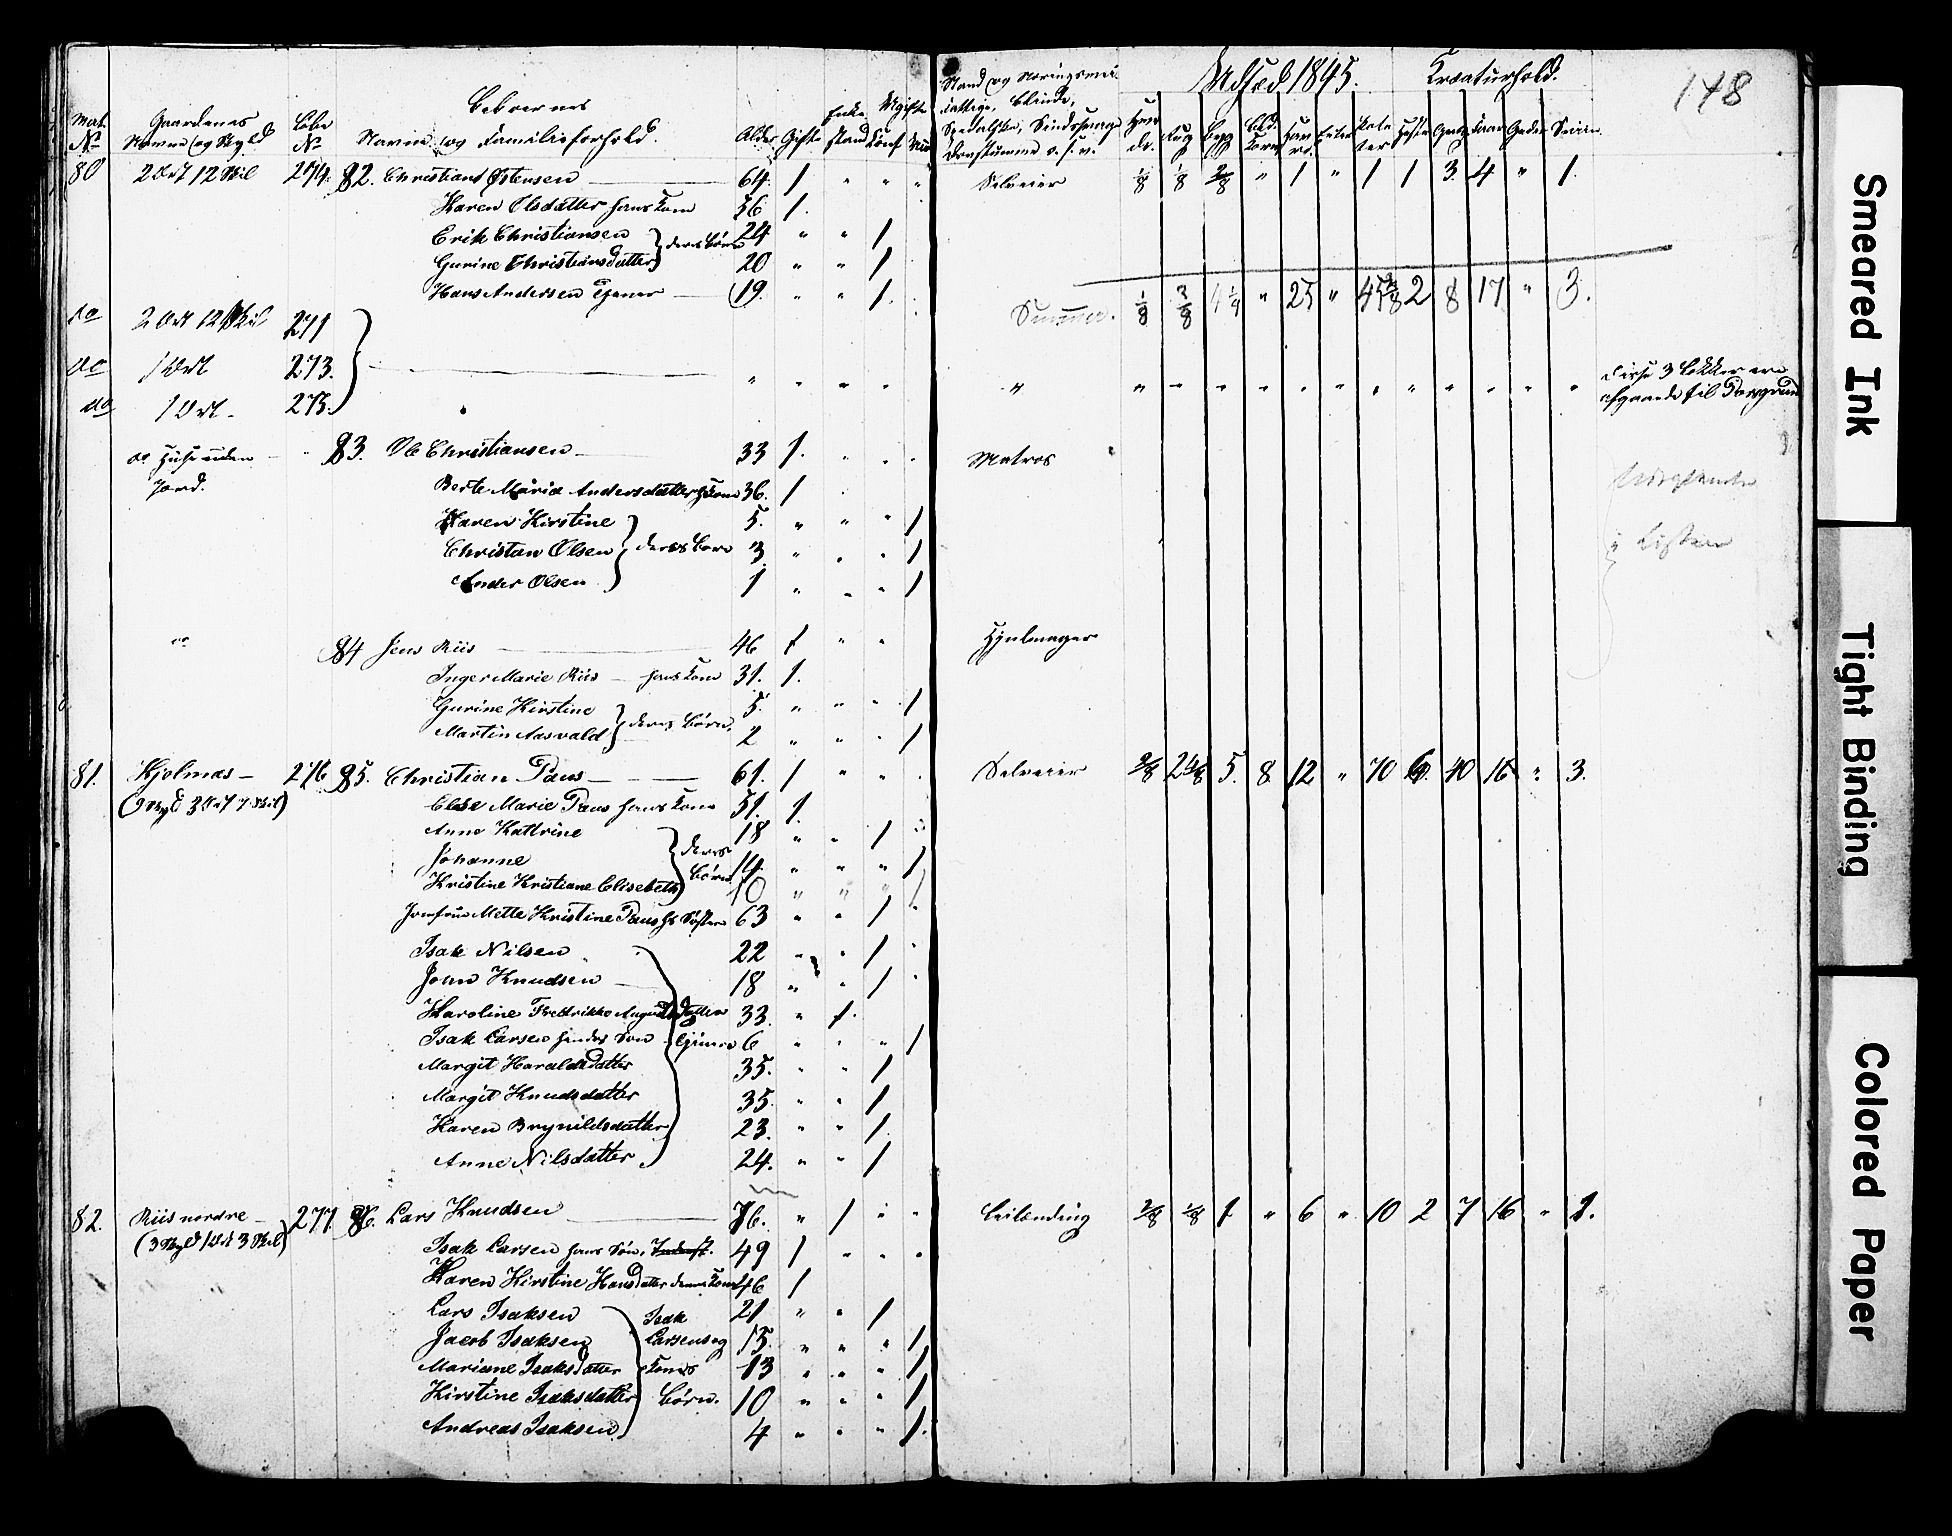 148
Mat. No Gaardenes Navne og Skyld Løbe No Beboernes Navne og Familieforhold. Alder Gifte Enke stand Ugifte
Udsæd 1845. Kreaturhold.
80 2 Ort 12 Skil 274. 82. Christians Østensen 64. 1 " " " Selveier 1/8 1/8 2/8 " 1 " 1 1 3 4 " 1.
Karen Olsdatter hans Kone 56 1.
Erik Christiansen 24 " " 1
Gurine Christiansdatter deres Børn 20 " " 1
Hans Andersen Tjener 19. " " 1.
Summa. 1/8 3/8 4 1/4 " 25 " 2 8 17 " 3.
do 2 Ort 12 Skil 271
do 1 Ort 273.
disse 3 Løkker ere
do 1 Ort 275.
do Huse uden 83. Ole Christiansen 33 1. " " " Matros
Jord. Berte Maria Andersdatter h Kone 36. 1
Karen Kirstine 5. " " " 1
Christan Olsen deres Børn 3 " " " 1
Ander Olsen 1 " " " 1
i Listen
do 84 Jens Riis 46 1 " " Hjulmager
Inger Marie Riis hans Kone 31. 1.
Gurine Kirstine 5. " " " 1
Martin Aasvald deres Børn. 2 " " " 1
81. Kjølnæs 276 85. Christian Paus 61. 1 " " " Selveier 2/8 2 4/8 5. 8 12 " 70 6. 40 16 " 3.
(Skyld 3 Ort 7 Skil) Else Marie Paus hans Kone 51. 1.
Anne Kattrine 18 " " 1
Johanne deres 14. " " " 1
Kristine Kristiane Elisebeth Børn 10 " " " 1
Jomfrue Mette Kristine Paus hs Søster 63 " " 1
Isak Nilsen 22 " " 1
John Knudsen 18 " " 1
Karoline Fredrikke Augustsdatter 33 " 1.
Isak Larsen hendes Søn Tjenere 6 " " " 1
Margit Haraldsdatter 35. " " 1
Margit Knudsdatter 35. " " 1
Karen Brynildsdatter 23. " " 1.
Anne Nilsdatter 24. " " 1
82. Riis nordre 277. 86. Lars Knudsen 76. " 1 " " Leilænding 2/8 4/8 1 " 6 " 10 2 7 16 " 1.
(Skyld 1 Ort 3 Skil) Isak Larsen hans Søn, 49 1 " " "
Karen Kirstine Hansdatter dennes Kone 46 1
Lars Isaksen Isak 21 " " 1
Jacob Isaksen Larsens og 15. " " " 1
Mariane Isaksdatter Kones 13 " " " 1
Kirstine Isaksdatter Børn. 10 " " " 1
Andreas Isaksen 4 " " " 1.
Smeared Ink
Tight Binding
Colored Paper